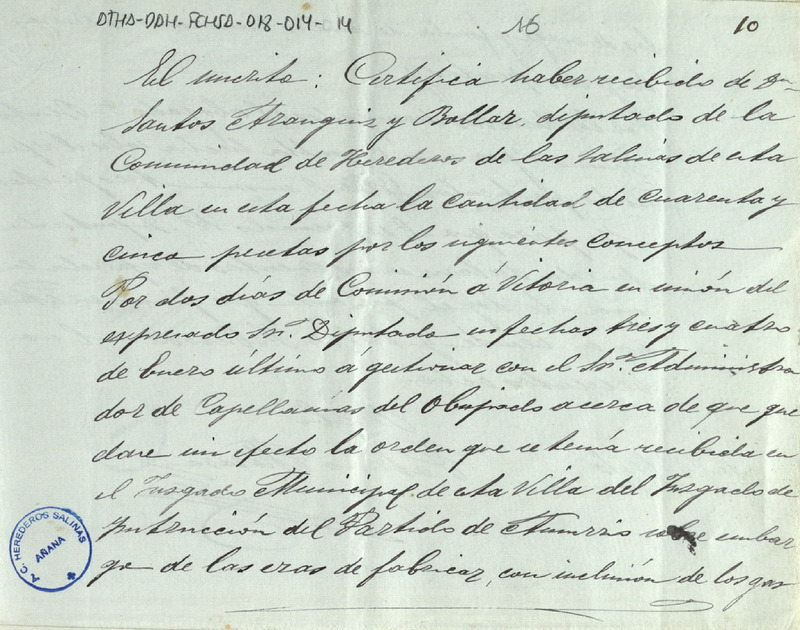 ATHA-DAH-FCHSA-018-014-14
16
10
El uscrito: Certifica haber recibido de Dn
Santos Aranguiz y Bollar, diputado de la
Comunidad de Herederos de las salinas de esta
Villa en esta fecha la cantidad de cuarenta y
cinco pesetas por los siguientes conceptos
Por dos días de Comisión á Vitoria en unión del
expresado Sr. Diputado en fechas tres y cuatro
de Enero último á gestionar con el Sr. Administra
dor de Capellanías del Obispado acerca de que que
dase sin efecto la orden que se tenía recibida en
el Juzgado Municipal de esta Villa del Juzgado de
Instrucción del Partido de Amurrio sobre embar
go de las eras de fabricar, con inclusión de los gas
T. C. HEREDEROS SALINAS
AÑANA